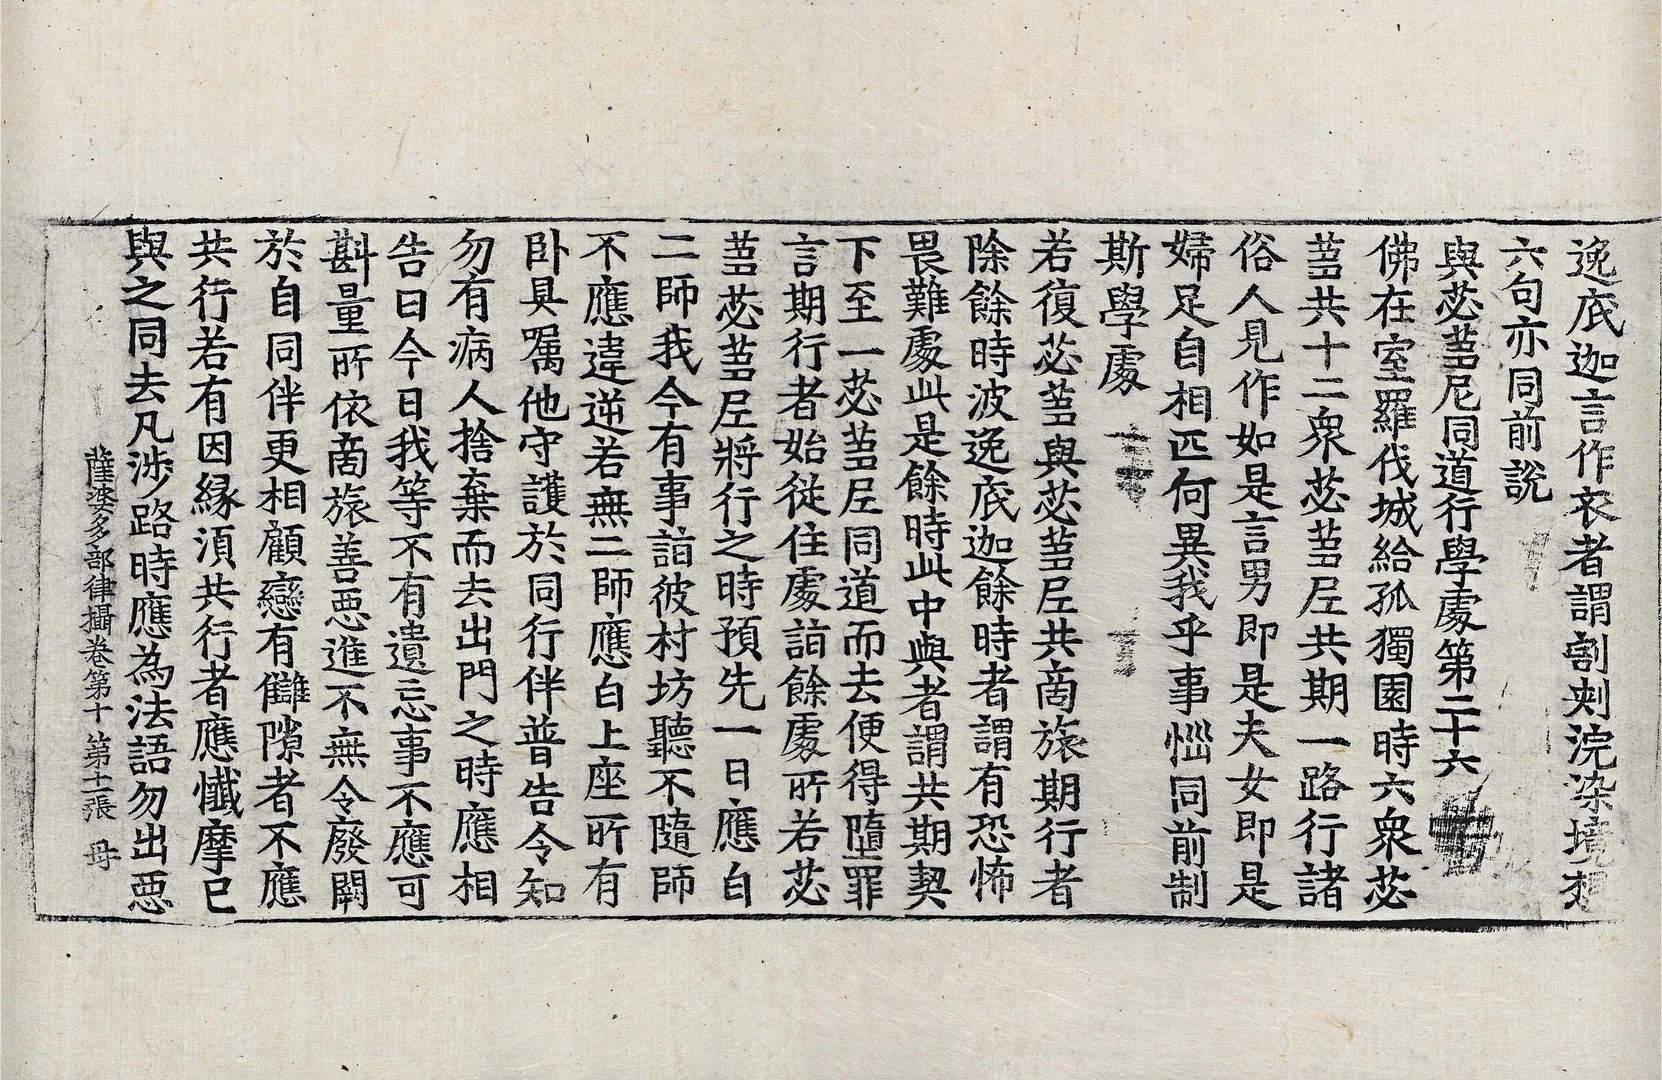 逸底迦言作衣者謂割刾浣染境想
六句亦同前說
與苾蒭尼同道行學處第二十六
佛在室羅伐城給孤獨園時六衆苾
蒭共十二衆苾蒭尼共期一路行諸
俗人見作如是言男即是夫女即是
婦足自相匹何異我乎事惱同前制
斯學處
若復苾蒭與苾蒭尼共啇旅期行者
除餘時波逸底迦餘時者謂有恐怖
畏難處此是餘時此中與者謂共期契
下至一苾蒭尼同道而去便得墮罪
言期行者始從住處詣餘處所若苾
蒭苾蒭尼將行之時預先一日應白
二師我今有事詣彼村坊聽不隨師
不應違逆若無二師應白上座所有
卧具囑他守護於同行伴普告令知
勿有病人捨棄而去出門之時應相
告曰今日我等不有遺忘事不應可
斟量所依啇旅善惡進不無令廢闕
於自同伴更相顧戀有讎隙者不應
共行若有因緣須共行者應懺摩已
與之同去凡涉路時應為法語勿出惡
薩婆多部律攝卷第十 第十一張 母